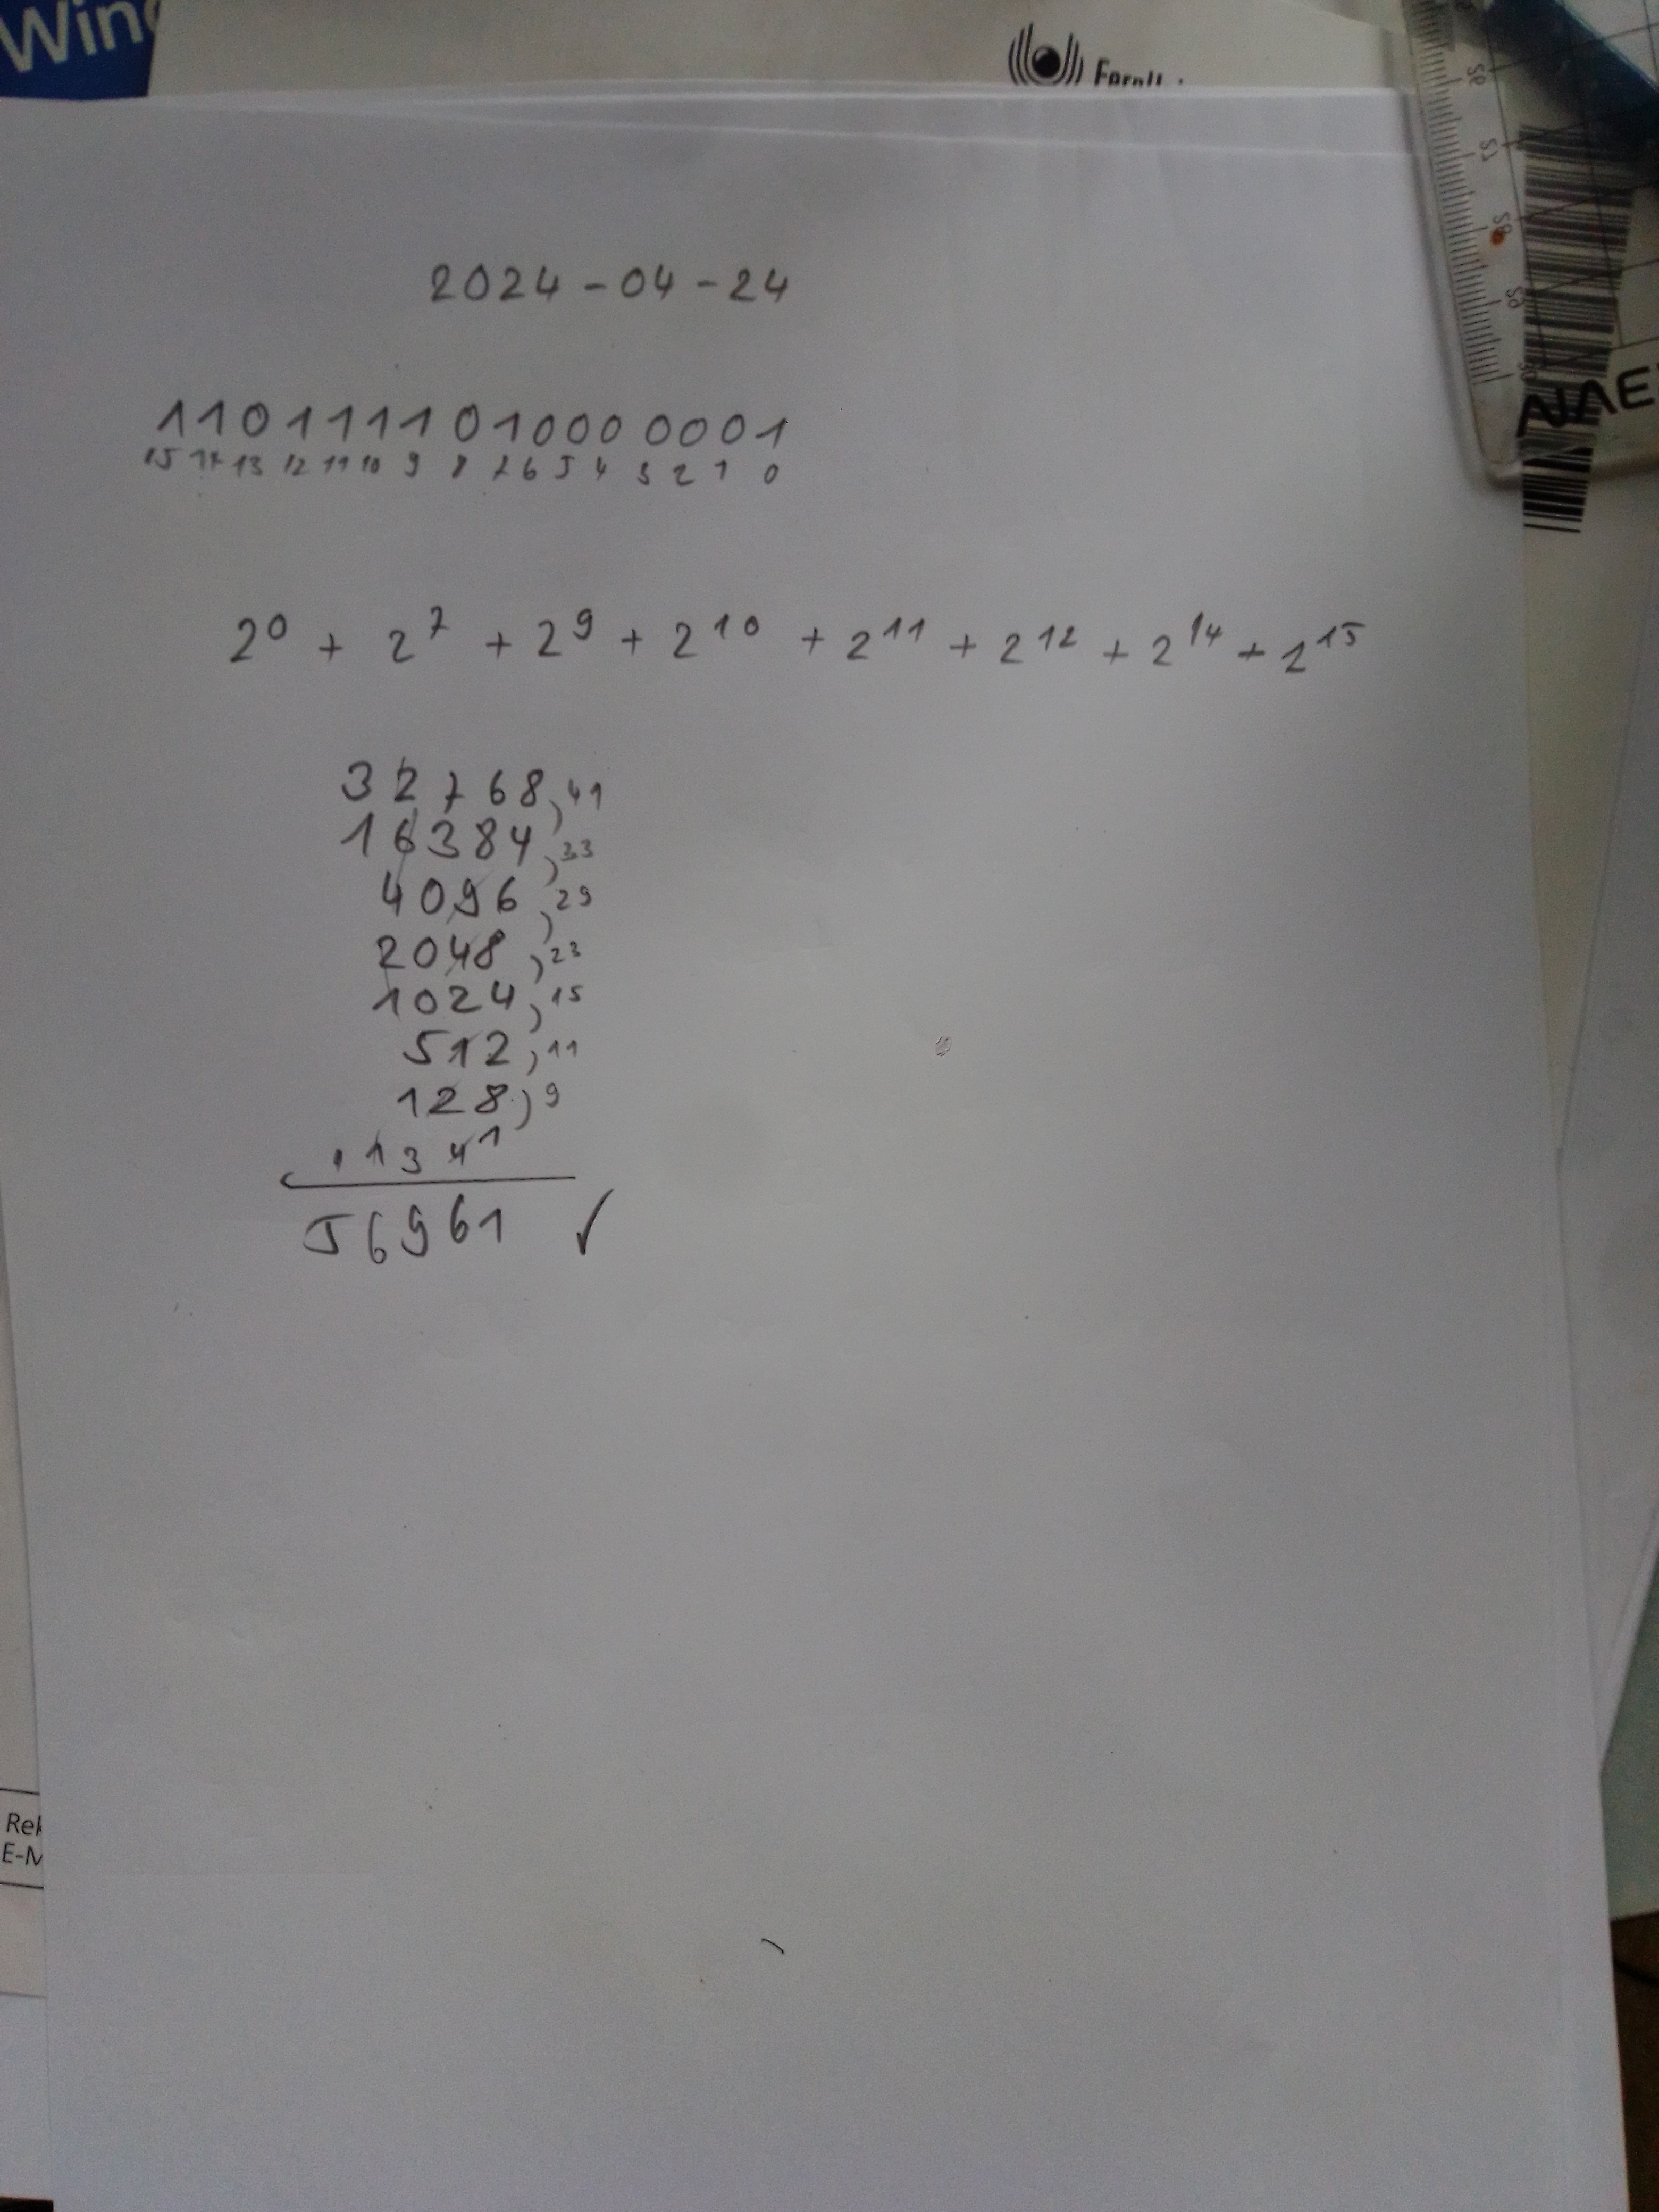 Win
2024-04-24
1101111010000001
15 14 13 12 11 10 9 8 7 6 5 4 3 2 1 0
2⁰ + 2⁷ + 2⁹ + 2¹⁰ + 2¹¹ + 2¹² + 2¹⁴ + 2¹⁵
32768, 41
16384, 33
4096, 29
2048, 23
1024, 15
512, 11
128, 9
1 1 3 4 1
56961 ✓
Rek
E-M